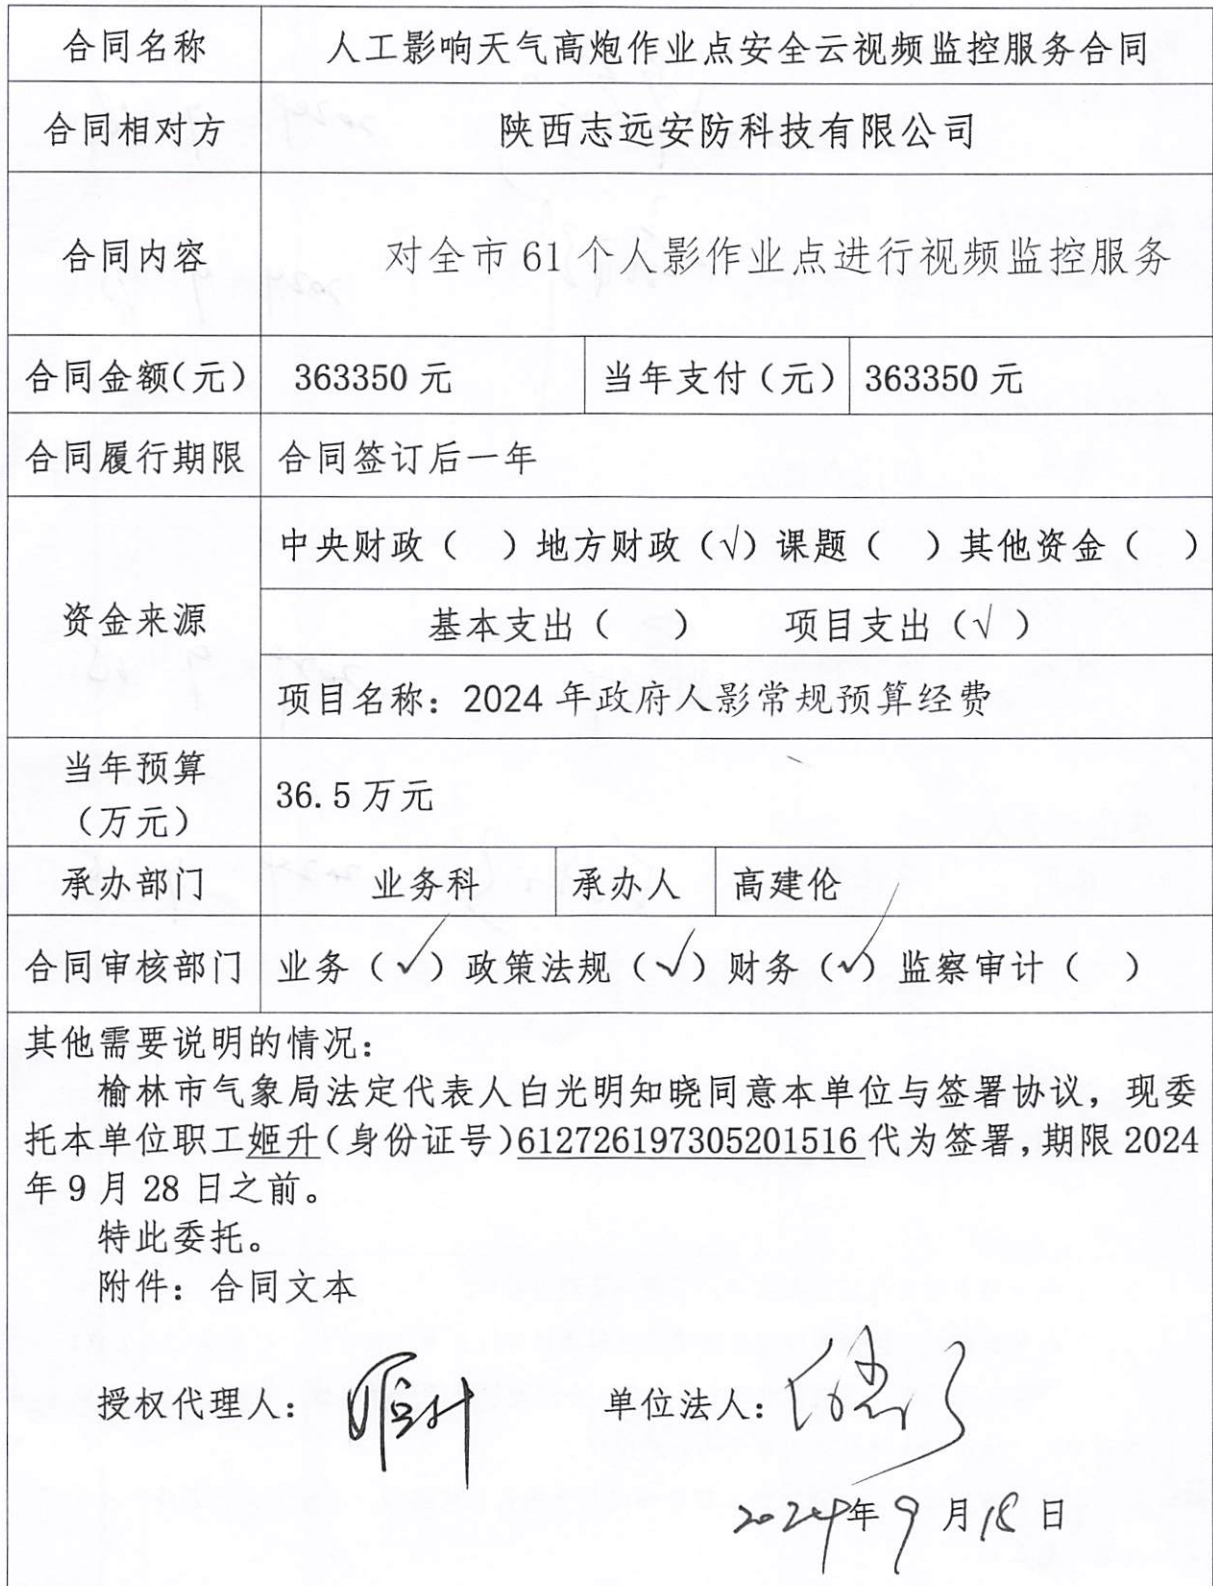 合同名称 人工影响天气高炮作业点安全云视频监控服务合同
合同相对方 陕西志远安防科技有限公司
合同内容 对全市61个人影作业点进行视频监控服务
合同金额(元) 363350元 当年支付(元) 363350元
合同履行期限 合同签订后一年
中央财政（ ）地方财政（√）课题（ ）其他资金（ ）
资金来源 基本支出（ ） 项目支出（√ ）
项目名称：2024年政府人影常规预算经费
当年预算
（万元） 36.5万元
承办部门 业务科 承办人 高建伦
合同审核部门 业务（√）政策法规（√）财务（√）监察审计（ ）
其他需要说明的情况：
榆林市气象局法定代表人白光明知晓同意本单位与签署协议，现委
托本单位职工姬升(身份证号)612726197305201516代为签署,期限2024
年9月28日之前。
特此委托。
附件：合同文本
授权代理人：姬升 单位法人：
2024年9月18日